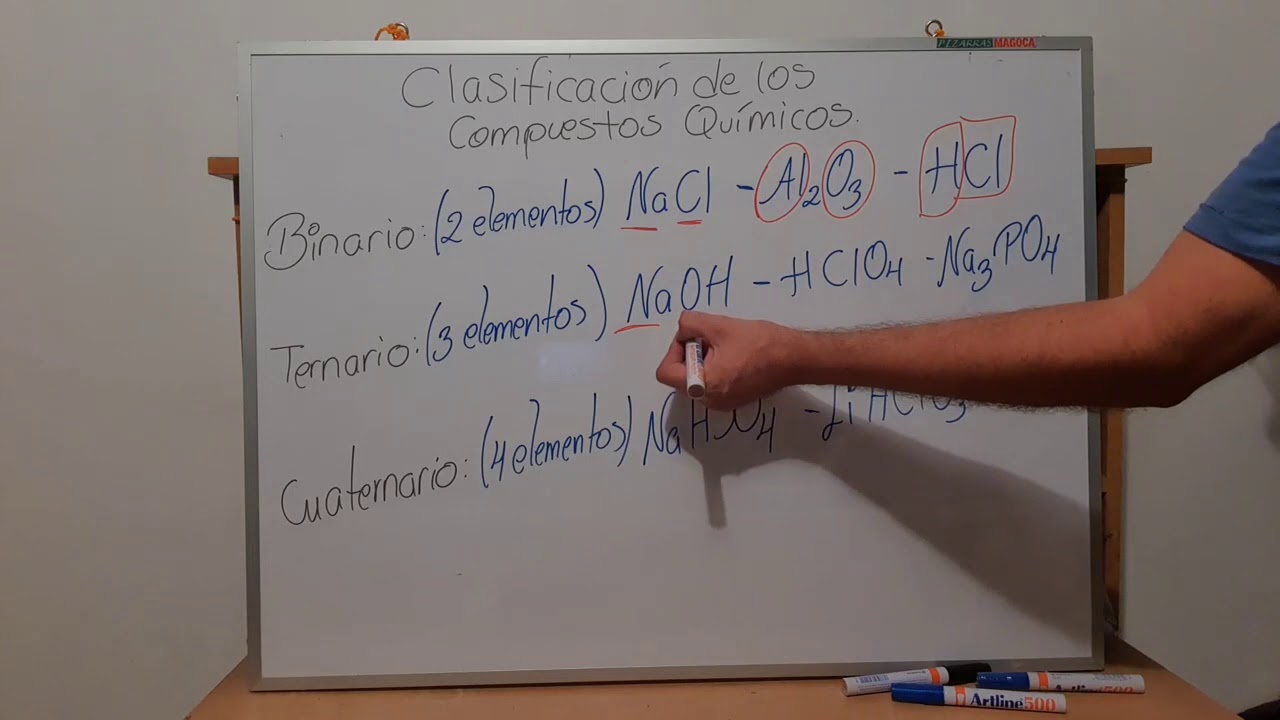 PIZARRAS MAGOCA
Clasificación de los
Compuestos Químicos.
Binario: (2 elementos) NaCl - Al₂O₃ - HCl
Ternario: (3 elementos) NaOH - HClO₄ - Na₃PO₄
Cuaternario: (4 elementos) - LiHClO₃
Artline 500
Artline 500